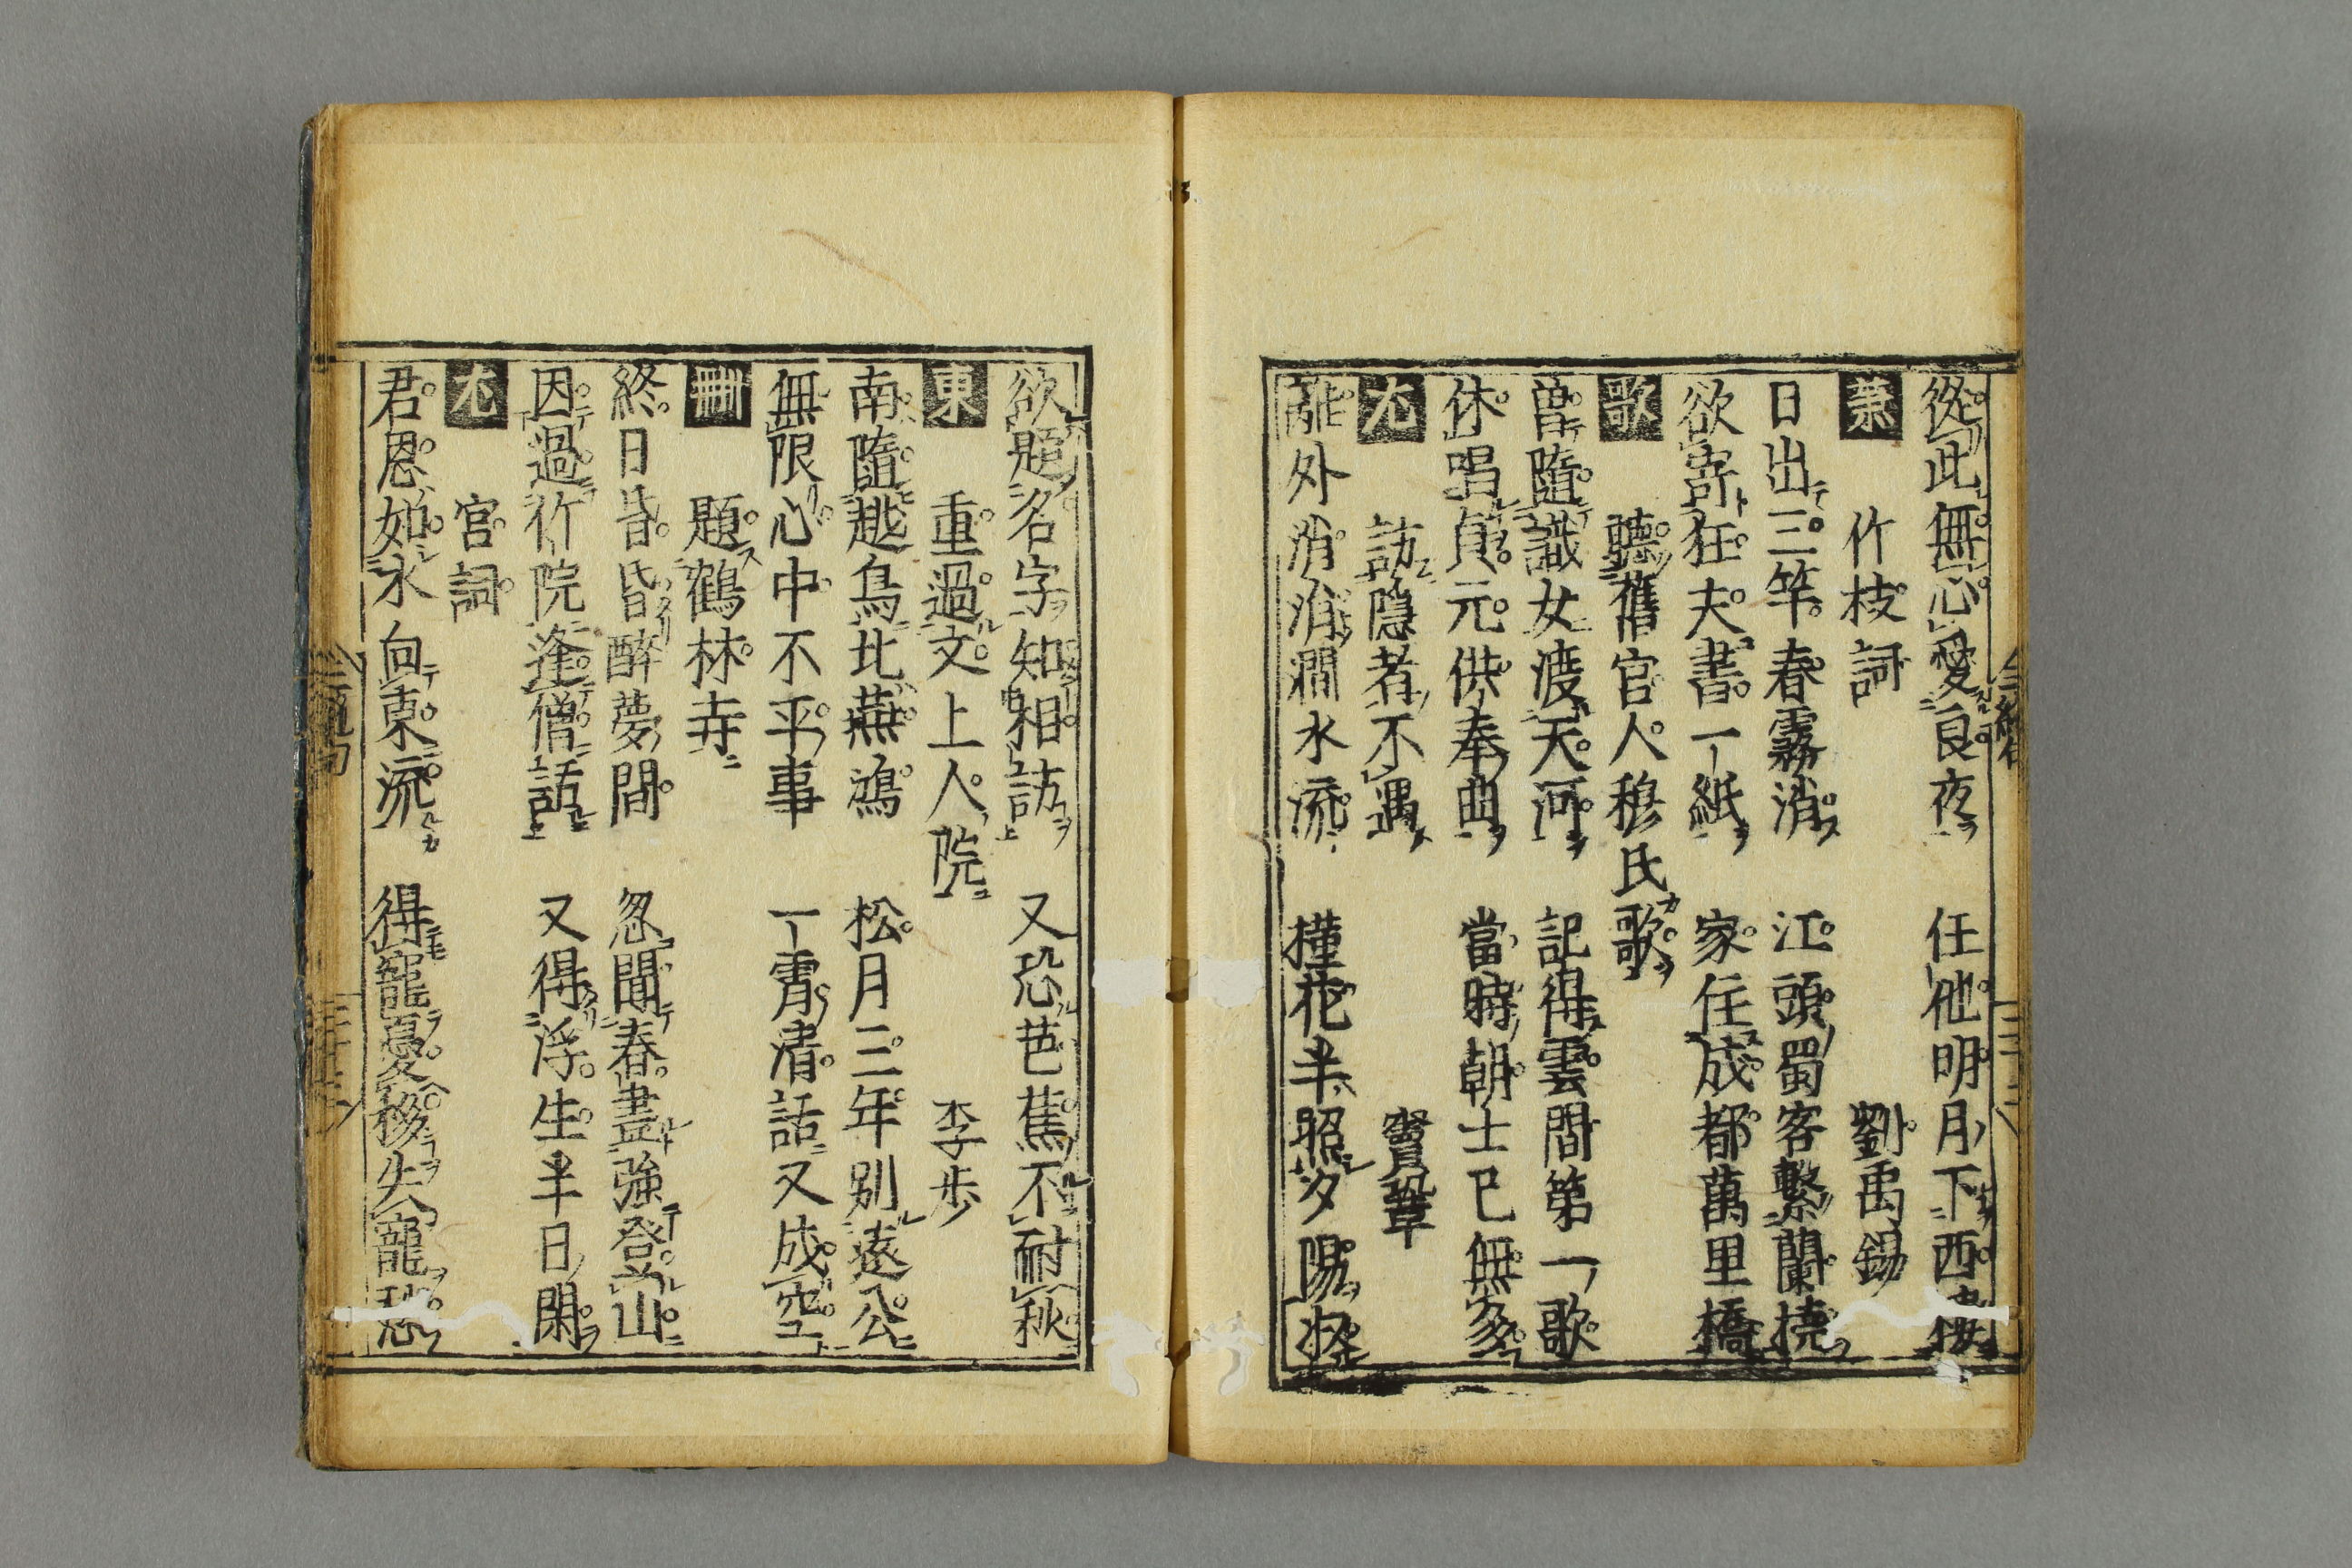 從此無心愛良夜 任他明月下西樓
蕭 竹枝詞 劉禹錫
日出三竿春霧消 江頭蜀客繫蘭橈
欲寄狂夫書一紙 家住成都萬里橋
歌 聽舊官人穆氏歌
曽隨識女渡天河 記得雲間第一歌
休唱貞元供奉曲 當時朝士已無多
尤 訪隠者不遇 竇鞏
籬外消消澗水流 槿花半照夕陽收
欲題名字知相訪 又恐芭蕉不耐秋
東 重過文上人院 李歩
南隨越鳥北燕鴻 松月三年別遠公
無限心中不平事 一霄清話又成空
刪 題鶴林寺
終日昏昏醉夢間 忽聞春盡強登山
因過竹院逢僧話 又得浮生半日閑
尤 官詞
君恩如水向東流 得寵憂移失寵愁